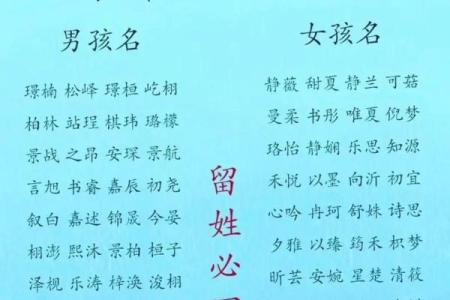 男孩名
璟楠 松峄 璟桓 屹栩
柏林 站珵 棋玮 璐檬
景战 之昂 安琛 景航
言旭 书睿 嘉辰 初尧
叙白 嘉述 锦晟 今晏
栩澎 熙沐 景柏 桓子
泽枧 乐涛 梓涣 浚栩
留姓必
女孩名
静薇 甜夏 静兰 可菇
曼柔 书彤 唯夏 倪梦
珞怡 静娴 乐思 知源
禾悦 以墨 向沂 初宜
心吟 冉珂 舒妹 诗思
夕雅 以臻 筠禾 枳梦
昕芸 安婉 星楚 清筱